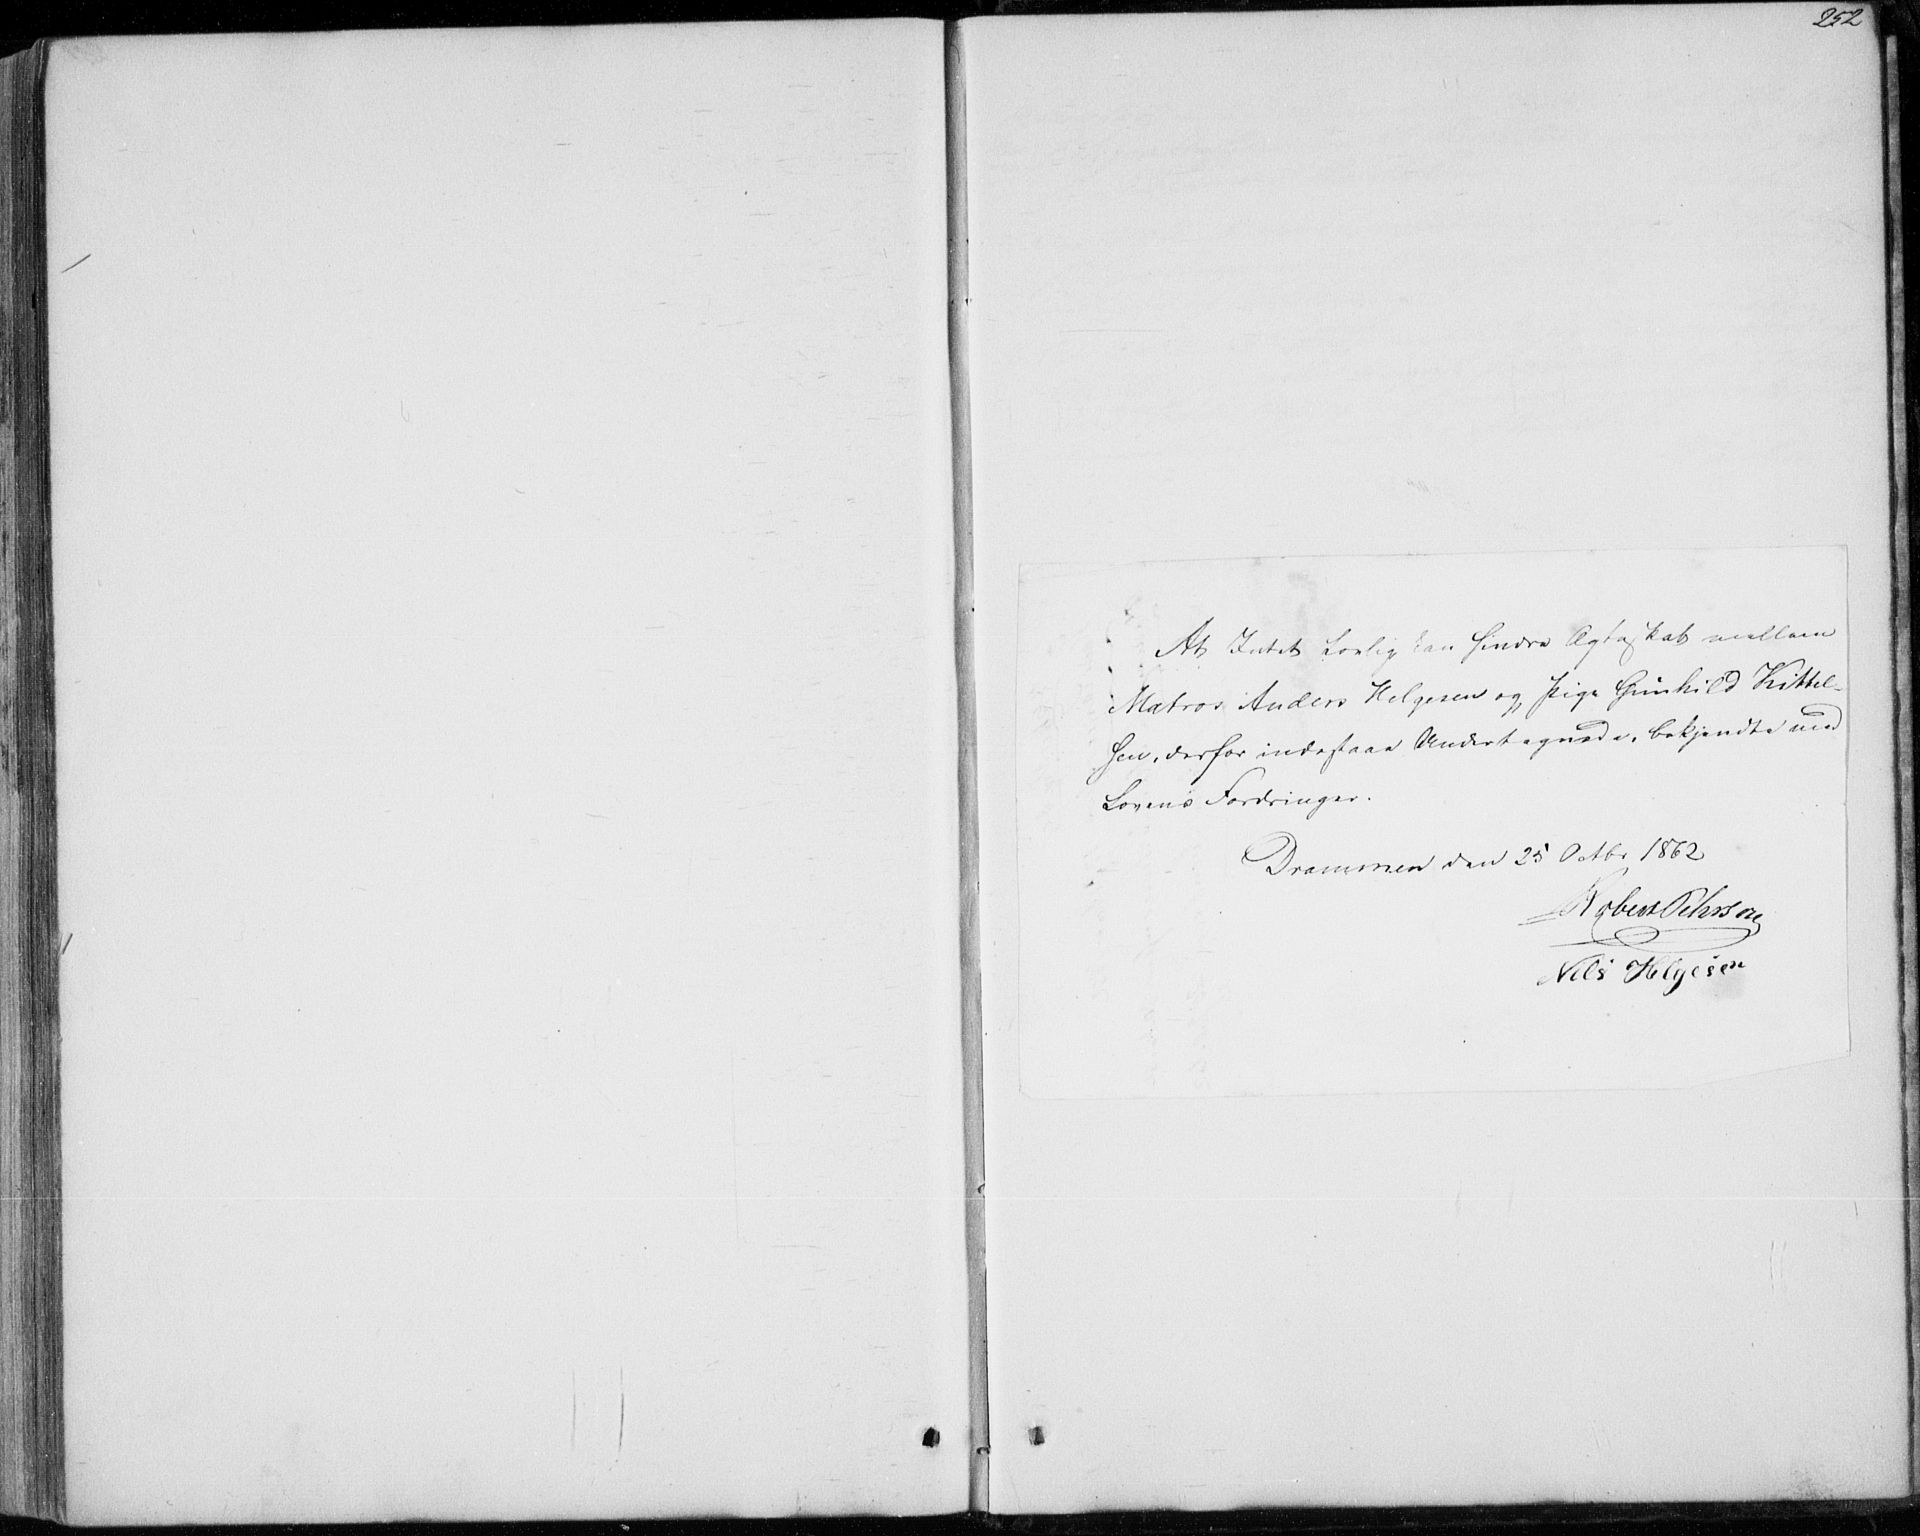 252
At Intet Lovlig kan hindre Ægteskab mellem
Matros Anders Helgesen og Pige Gunhild Kittel-
sen, derfor indestaae Undertegnede, bekjendte med
Lovens Fordringer.
Drammen den 25 Octbr 1862
Robert Pehrson
Nils Helgesen